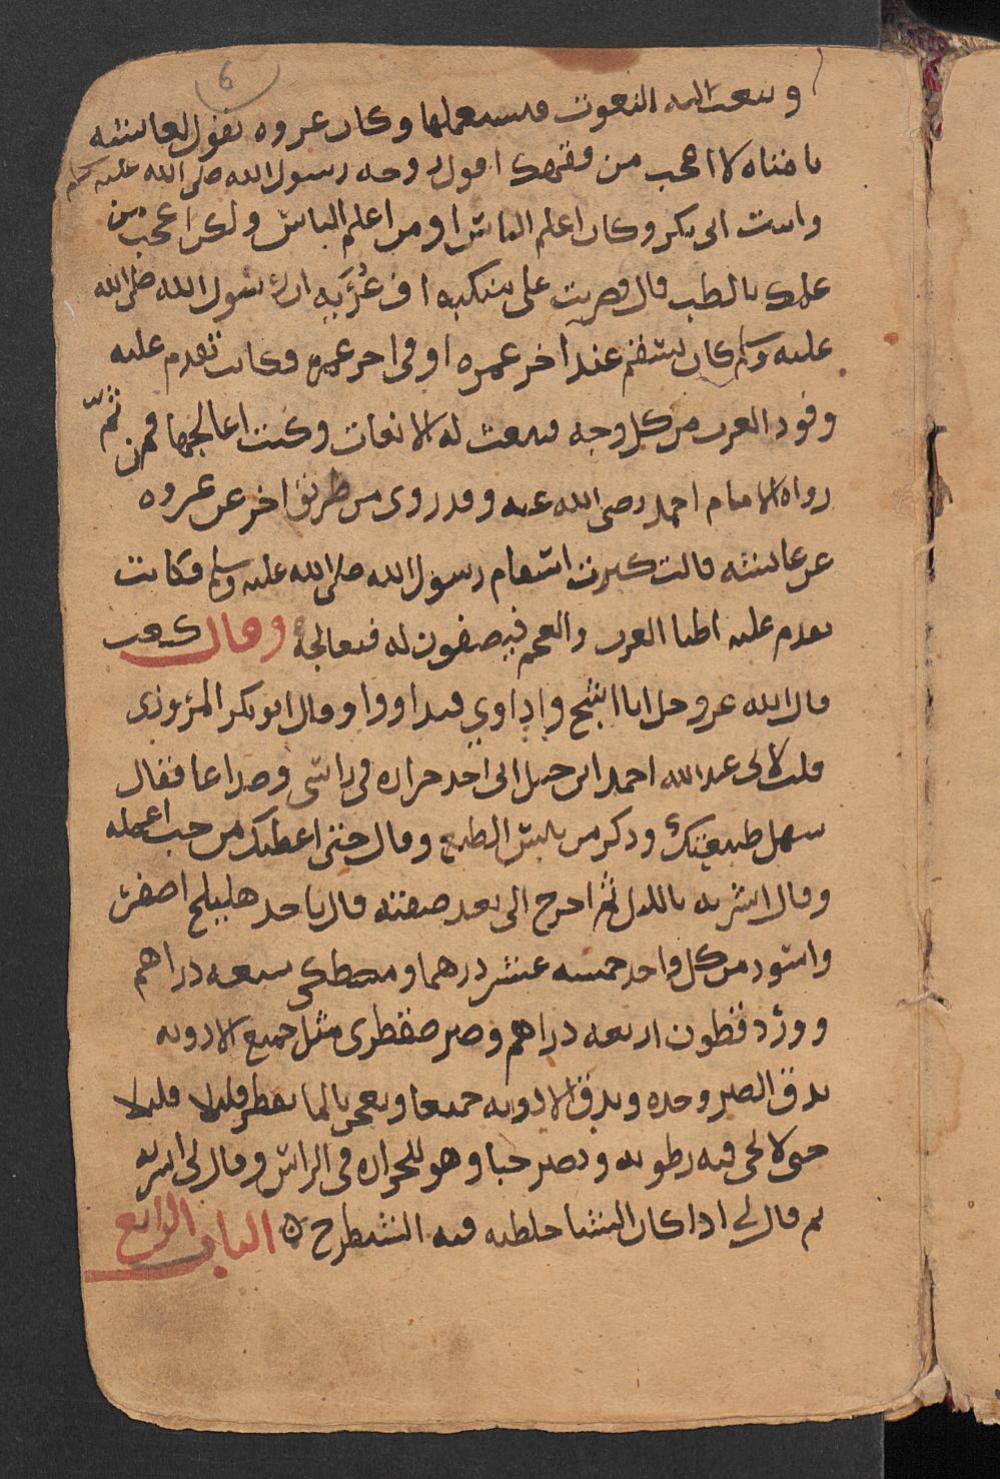 6
وينعت اليه النعوت فيستعملها وكان عروه يقول لعائشه
يا امتاه لا اعجب من فقهك اقول زوجه رسول الله صلى الله عليه وسلم
وابنت ابى بكر وكان اعلم الناس او من اعلم الناس ولكن اعجب من
علمك بالطب قال فضربت على منكبيه اى عُرَيَّه ان رسول الله صلى الله
عليه وسلم كان يسقم عند اخر عمره او فى اخر عمره وكانت تقدم عليه
وفود العرب من كل وجه فينعت له الانعات وكنت اعالجها فمن ثَمّ
رواه الامام احمد رضى الله عنه وقد روى من طريق اخر عن عروه
عن عائشه قالت كثرت اسقام رسول الله صلى الله عليه وسلم فكانت
يقدم عليه اطبا العرب والعجم فيصفون له فنعالجه وقال كعب
قال الله عز وجل انا اشج واداوي فتداووا وقال ابو بكر المروزى
قلت لابى عبد الله احمد ابن حنبل انى اجد حراره فى راسى وصداعا فقال
سهل طبيعتك وذكر من يابس الطبع وقال حتى اعطيك من حب اعمله
وقال اشربه بالليل ثم اخرج الى بعد صفته قال ياخذ هليلج اصفر
واسود من كل واحد خمسه عشر درهما ومصطكى سبعه دراهم
وورد فقطون اربعه دراهم وصبر صقطرى مثل جميع الادويه
يدق الصبر وحده ويدق الادويه جميعا ويعجن بالما يقطر قليلا قليلا
حتى لا يجى فيه رطوبه ويصير حبا وهو للحراره فى الراس وقال لى اشربه
ثم قال لى اذا كان الشتا خلطنا فيه الشيطرج ۞ الباب الرابع